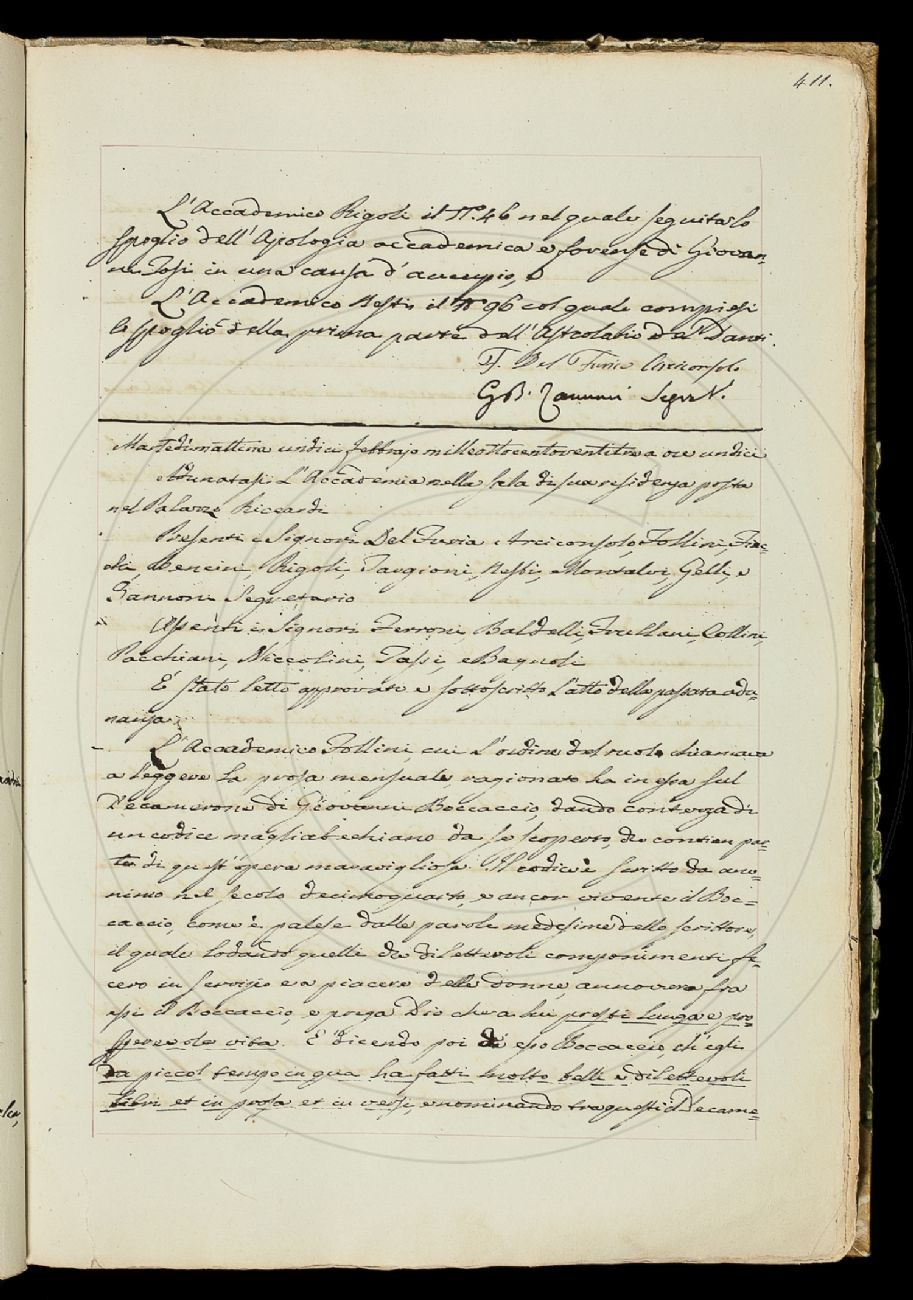 411.
L'Accademico Rigoli il N.º 46 nel quale seguita lo
spoglio dell'Apologia accademica e forense di Giovan=
ni Tosi in una causa d'aucupio, e
L'Accademico Nesti il Nº 96 col quale compiesi
lo spoglio della prima parte dell'Astrolabio del Danti.
F. Del Furia Arciconsolo
GB. Zannoni Segret.
Martedì mattina undici febbrajo milleottocentoventitre a ore undici
Adunatasi L'Accademia nella sala di sua residenza posta
nel Palazzo Riccardi
Presenti i Signori Del Furia Arciconsolo, Follini,
Bencini, Rigoli, Targioni, Nesti, Montalvi, Gelli, e
Zannoni Segretario
Assenti i Signori Ferroni, Baldelli, Frullani, Collini,
Pacchiani, Niccolini, Tassi, e Bagnoli
È stato letto approvato e sottoscritto l'atto della passata adu=
nanza.
L'Accademico Follini, cui l'ordine del ruolo chiamava
a leggere la prosa mensuale, ragionato ha in essa sul
Decamerone di Giovanni Boccaccio, dando contezza di
un codice magliabechiano da se scoperto, che contien par=
te di quest'opera maravigliosa. Il codice è scritto da ano=
nimo nel secolo decimoquarto, e ancor vivente il Boc=
caccio, come è palese dalle parole medesime dello scrittore,
il quale lodando quelli che dilettevoli componimenti fe=
cero in servizio e a piacere delle donne, annovera fra
essi il Boccaccio, e prega Dio che a lui presti lunga e pro=
sperevole vita. E dicendo poi di esso Boccaccio, ch'egli
da piccol tempo in qua ha fatti molto belli e dilettevoli
libri et in prosa et in versi, e nominando tra questi il Decame=